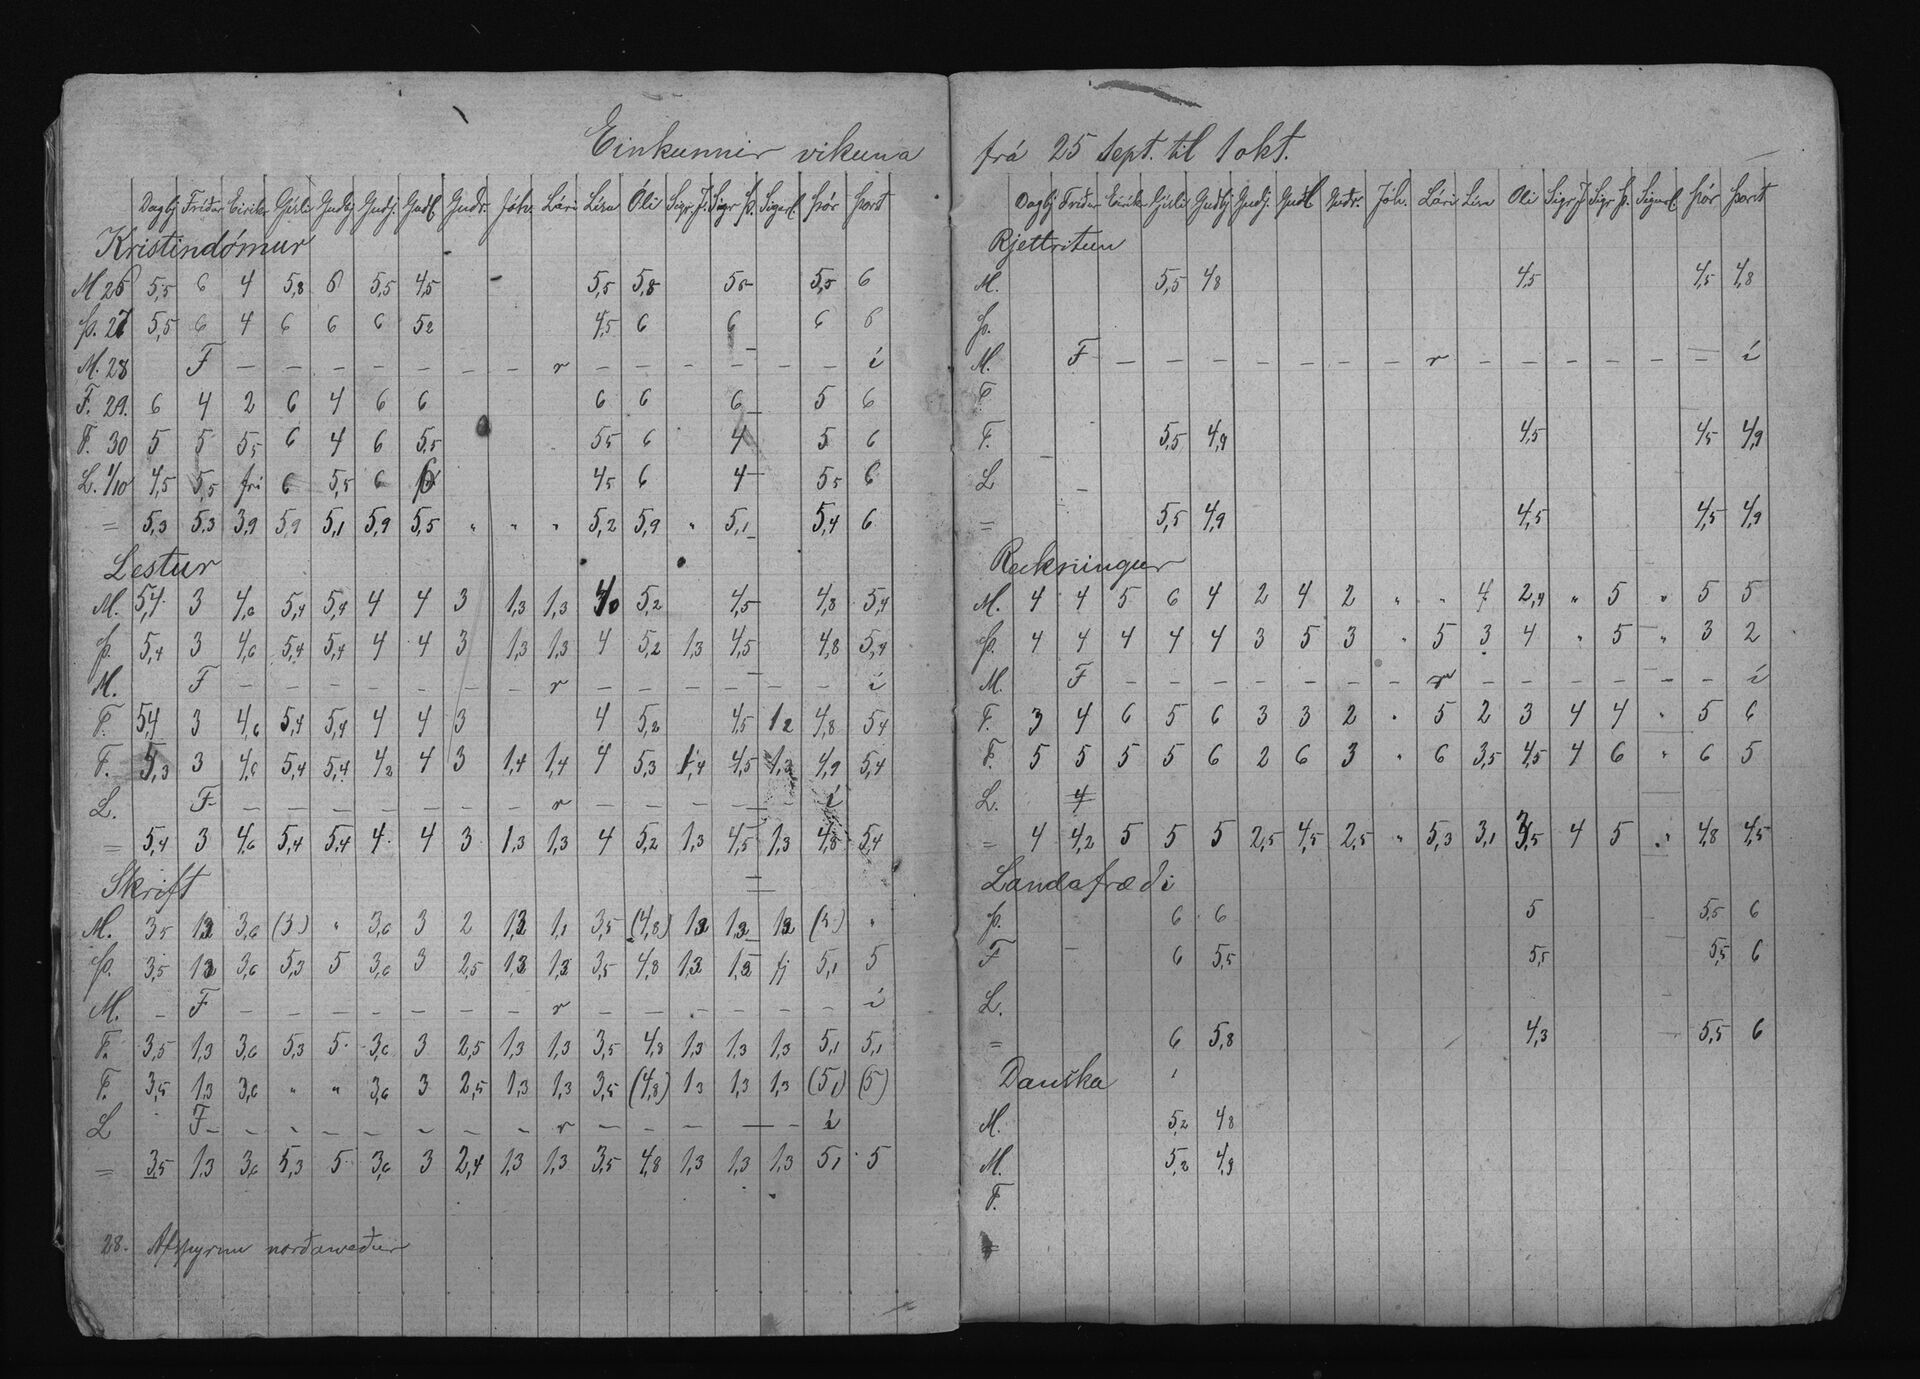 Einkunnir vikuna
Dagbj Fríður Eirikr Gisli Gudbj Gudj. Gudl Gudr. Jóh. Lári Lína Óli Sigr J. Sigr Þ. Sigurl. Þór Þorst
Kristindómur
M 26 5,5 6 4 5,8 6 5,5 4,5 5,5 5,8 55 5,5 6
Þ. 27 5,5 6 4 6 6 6 52 4,5 6 6 6 6
M. 28 F – – – – – – – r – – – – – – í
F. 29. 6 4 2 6 4 6 6 6 6 6 5 6
F. 30 5 5 55 6 4 6 5,5 55 6 4 5 6
L. 1/10 4,5 5,5 frí 6 5,5 6 6 45 6 4 55 6
= 5,3 5,3 3,9 5,9 5,1 5,9 5,5 „ „ „ 5,2 5,9 „ 5,1 5,4 6
Lestur
M. 5,4 3 4,6 5,4 5,4 4 4 3 1,3 1,3 4,0 5,2 4,5 4,8 5,4
Þ. 5,4 3 4,6 5,4 5,4 4 4 3 1,3 1,3 4 5,2 1,3 4,5 4,8 5,4
M. F – – – – – – – r – – – – – – í
F. 5,4 3 4,6 5,4 5,4 4 4 3 4 5,2 4,5 1,2 4,8 5,4
F. 5,3 3 4,6 5,4 5,4 4,2 4 3 1,4 1,4 4 5,3 1,4 4,5 1,3 4,9 5,4
L. F – – – – – – – r – – – – – í
= 5,4 3 4,6 5,4 5,4 4 4 3 1,3 1,3 4 5,2 1,3 4,5 1,3 4,8 5,4
Skrift
M. 35 1,2 3,6 (5) „ 3,6 3 2 1,2 1,1 3,5 (4,8) 1,2 1,2 1,2 (5) „
Þ. 3,5 1,2 3,6 5,3 5 3,6 3 2,5 1,2 1,2 3,5 4,8 1,2 1,2 fj 5,1 5
M. – F – – – – – – – r – – – – – – í
F. 3,5 1,3 3,6 5,3 5 3,6 3 2,5 1,3 1,3 3,5 4,8 1,3 1,3 1,3 5,1 5,1
F. 3,5 1,3 3,6 „ „ 3,6 3 2,5 1,3 1,3 3,5 (4,8) 1,3 1,3 1,3 (5,1) (5)
L F – – – – – – – r – – – – – í
= 3,5 1,3 3,6 5,3 5 3,6 3 2,4 1,3 1,3 3,5 4,8 1,3 1,3 1,3 5,1 5
28. Afspyrnu norðanveður
frá 25 sept. til 1 okt.
Dagbj Fríður Eirikr Gisli Gudbj Gudj. Gudl Gudr. Jóh. Lári Lína Óli Sigr J Sigr Þ. Sigurl Þór Þorst
Rjettritun
M. 5,5 4,8 4,5 4,5 4,8
Þ.
M. F – – – – – – – r – – – – – – í
F.
F. 5,5 4,9 4,5 4,5 4,9
L
= 5,5 4,9 4,5 4,5 4,9
Reikningur
M. 4 4 5 6 4 2 4 2 „ „ 4 2,4 „ 5 „ 5 5
Þ. 4 4 4 4 4 3 5 3 „ 5 3 4 „ 5 „ 3 2
M. F – – – – – – – r – – – – – – í
F. 3 4 6 5 6 3 3 2 „ 5 2 3 4 4 „ 5 6
F. 5 5 5 5 6 2 6 3 „ 6 3,5 4,5 4 6 „ 6 5
L. 4
= 4 4,2 5 5 5 2,5 4,5 2,5 „ 5,3 3,1 3,5 4 5 „ 4,8 4,5
Landafræði
Þ. 6 6 5 5,5 6
F 6 5,5 5,5 5,5 6
L.
= 6 5,8 4,3 5,5 6
Danska
M. 5,2 4,8
M. 5,2 4,9
F.
=